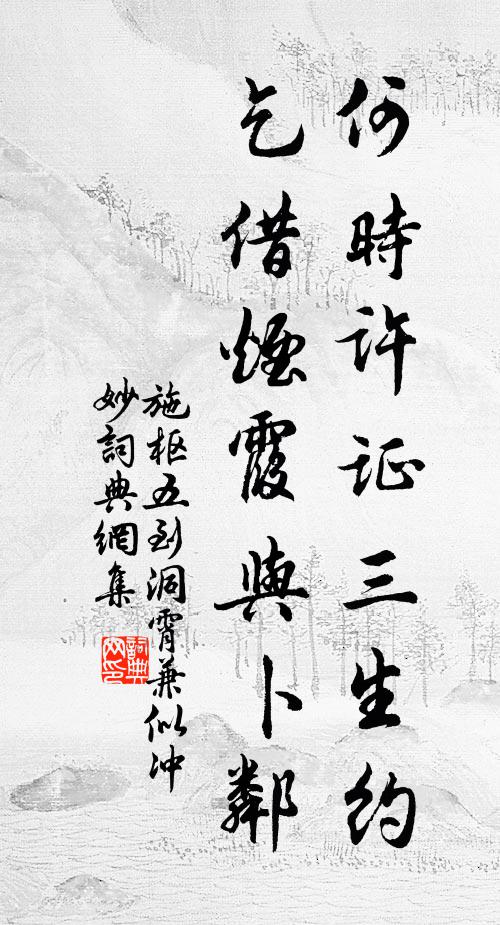 何時許証三生約
乞借煙霞與卜鄰
施枢五到洞霄兼似冲
妙詞典網集
詞典网印